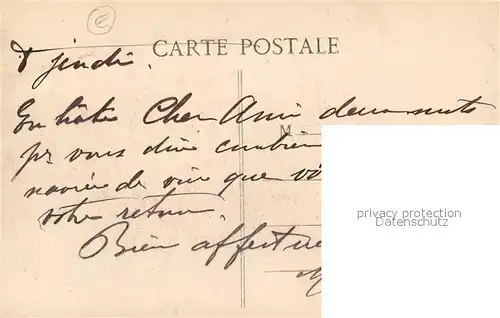 CARTE POSTALE
jeudi.
En hâte Cher Ami deux mots
M
pr vous dire combien
navrée de voir que
votre retour.
privacy protection
Datenschutz
Bien